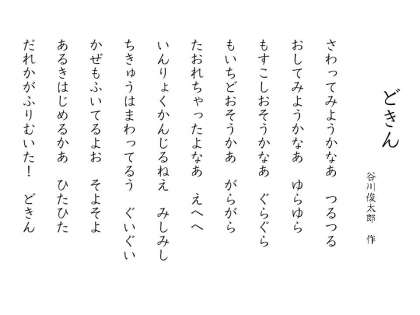 どきん
谷川俊太郎　作
さわってみようかなあ　つるつる
おしてみようかなあ　ゆらゆら
もすこしおそうかなあ　ぐらぐら
もいちどおそうかあ　がらがら
たおれちゃったよなあ　えへへ
いんりょくかんじるねえ　みしみし
ちきゅうはまわってるう　ぐいぐい
かぜもふいてるよお　そよそよ
あるきはじめるかあ　ひたひた
だれかがふりむいた！　どきん